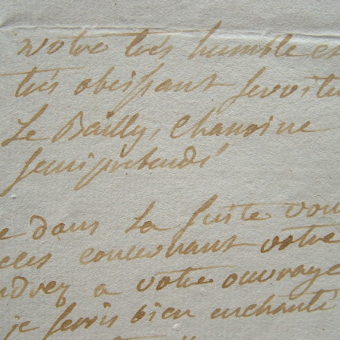 votre très humble et
très obeissant servite
Le Bailly, Chanoine
semiprebendé
e dans la suite vou
cles concernant votre
ndrez a votre ouvrage
je serois bien enchanté